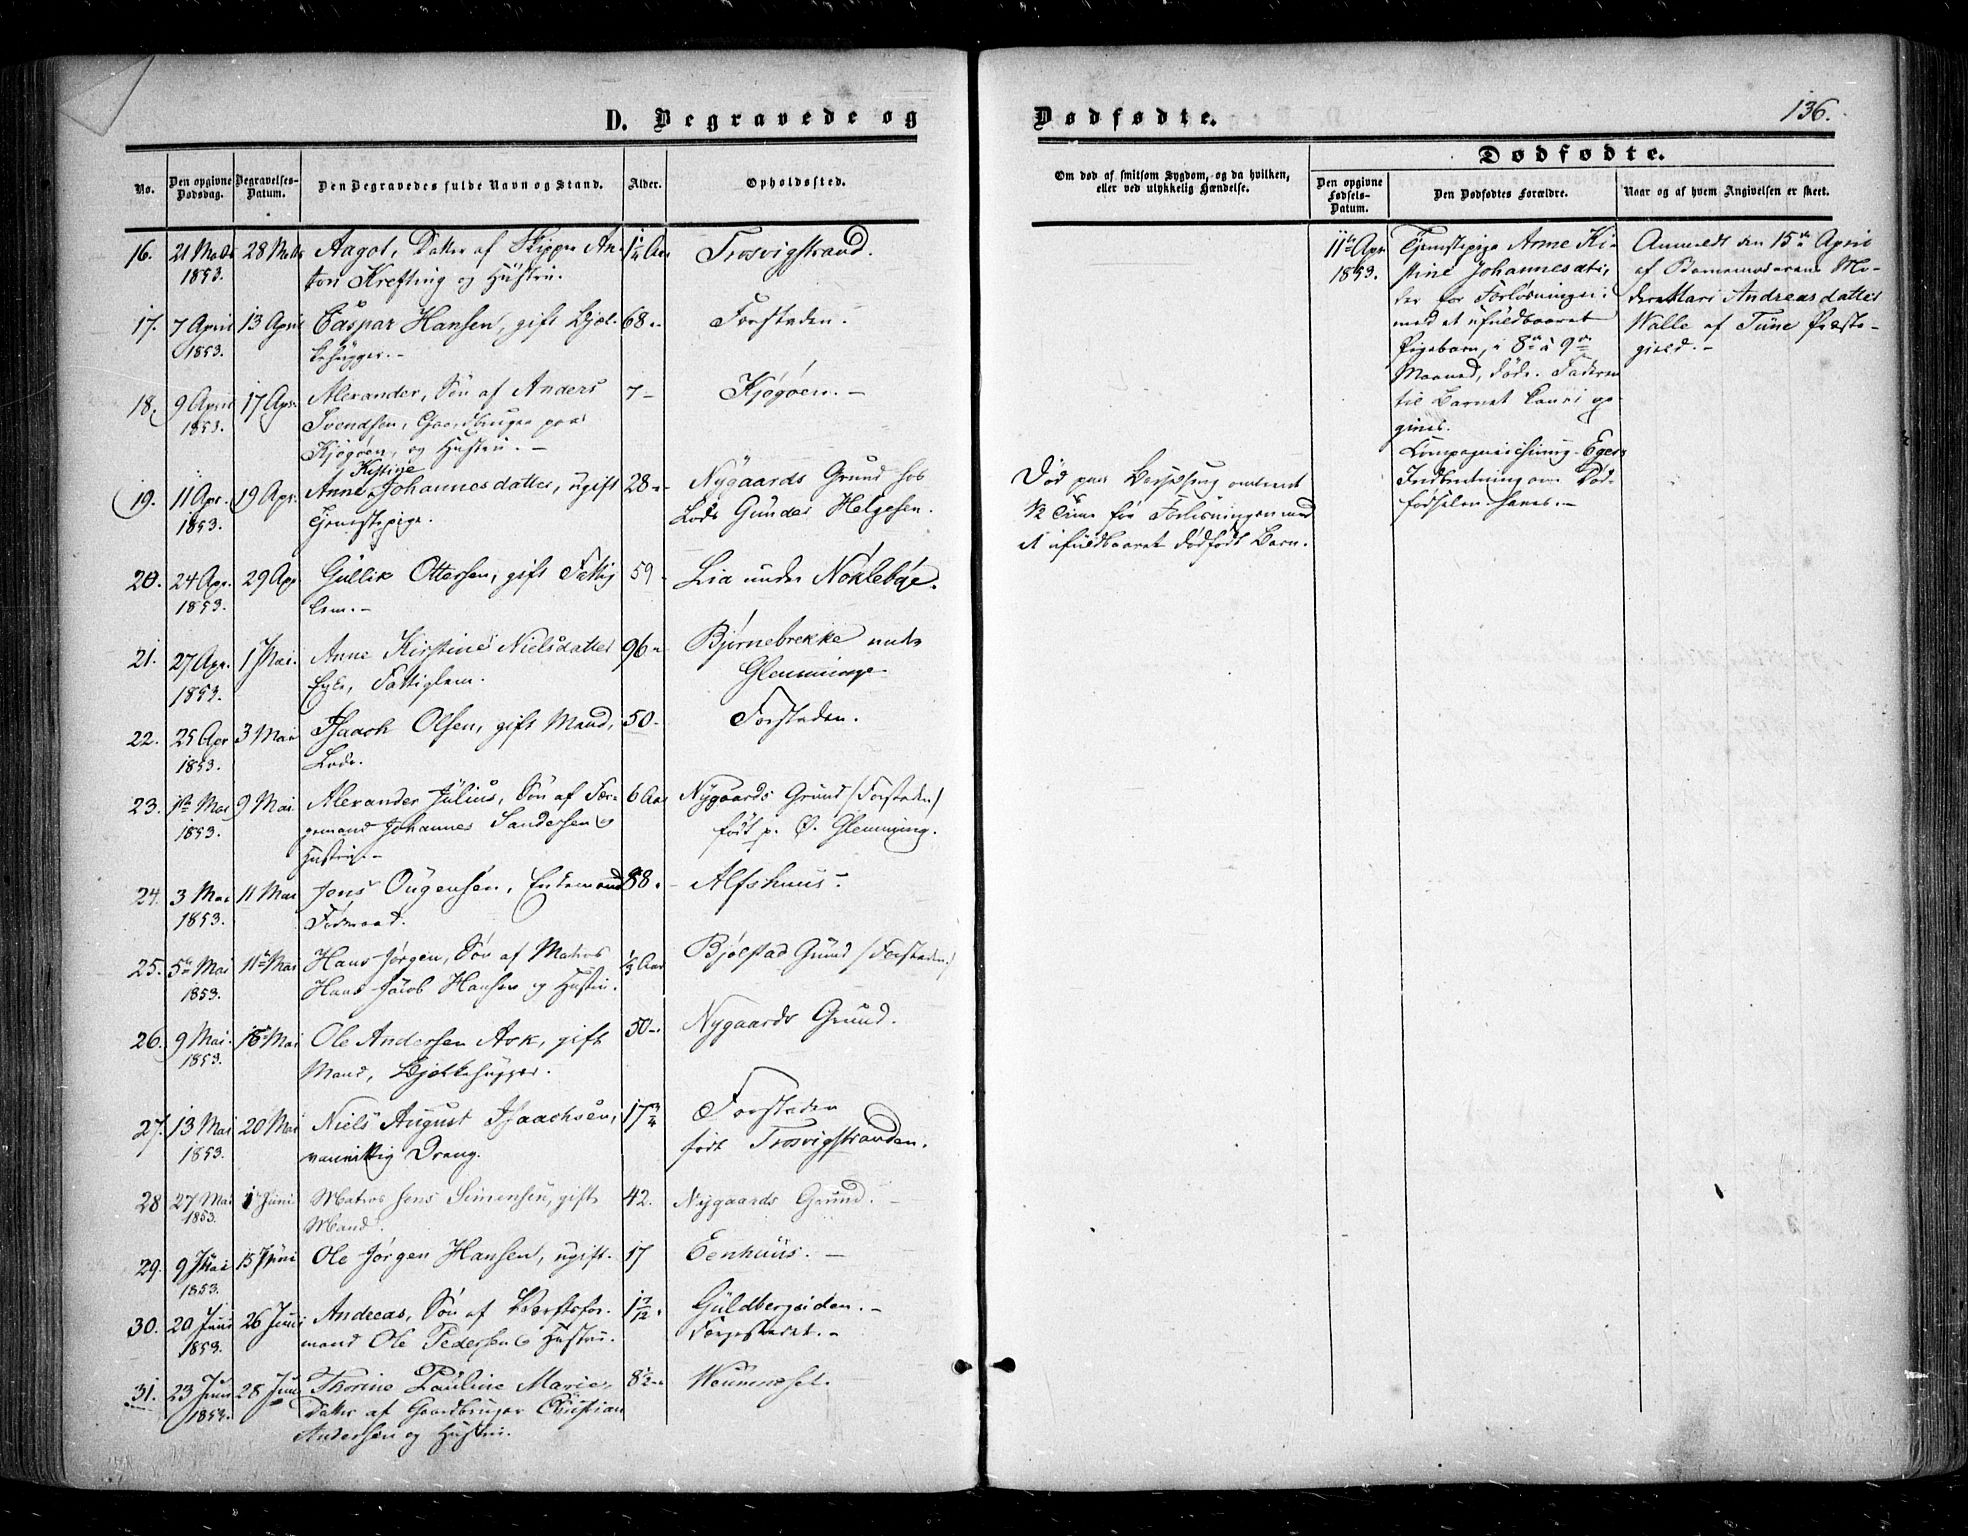 D. Begravede og
No.
Den opgivne Dødsdag.
Begravelses-Datum.
Den Begravedes fulde Navn og Stand.
Alder.
Opholdssted.
16. 21 Marts 1853. 28 Marts Aagot, Datter af Skipper An-
ton Krefting og Hustru. Trosvigstrand.
17. 7 April 1853. 13 April Caspar Hansen, gift Bjel-
kehugger.- 68 Forstaden.
18. 9 April 1853. 17 Apr. Alexander, Søn af Anders
Svendsen, Gaardbruger paa
Kjøgøen, og Hustru.- 7- Kjøgøen.-
19. 11 Apr. 1853. 19 Apr. Anne Kistine Johannesdatter, ugift
Tjenestepige. 28 Nygaards Grund hos
Lods Gunder Helgesen.
Død paa Barselseng omtrent
½ Time før Forløsningen med
et ufuldbaaret dødfødt Barn.
20. 24 Apr. 1853. 29 Apr Gullik Ottersen, gift Fattig
lem.- 59 Lia under Noklebye.
21. 27 Apr. 1853. 1 Mai. Anne Kirstine Nielsdatter
Enke, Fattiglem. 96 Bjørnebrekke under
Glemminge
22. 25 Apr 1853. 3 Mai Isaach Olsen, gift Mand,
Lods. 50- Forstaden.
23. 1ste Mai 1853. 9 Mai Alexander Julius, Søn af Fær-
gemand Johannes Sandersen og
Hustru.- 6 Aar Nygaards Grund /Forstaden/
født p. O. Glemming.
24. 3 Mai 1853. 11 Mai Jens Ougensen, Enkemand
Fødraad. 88 Alfshuus.
25. 5te Mai 1853. 11te Mai Hans Jørgen, Søn af Matros
Hans Jacob Hansen og Hustru. 1/3 Aar Bjølstad Grund /Forstaden./
26. 9 Mai. 1853. 18 Mai Ole Andersen Ark, gift
Mand, Bjelkehugger. 50 Nygaards Grund.
27. 13 Mai 1853. 20 Mai Niels August Isaachsen,
vanvittig Dreng. 17 3/4 Forstaden
født Trosvigstranden.
28 27 Mai 1853. 1 Juni Matros Jens Simensen, gift
Mand. 42. Nygaards Grund.
29. 9 1853. 15 Juni Ole Jørgen Hansen, ugift. 17 Eenhuus.-
30. 20 Juni 1853. 26 Juni Andreas, Søn af Værftsfor-
mand Ole Pedersen og Hustru. 1 7/12 Guldbergsiden.-
Færgestedet.-
31. 23 Juni 1853. 28 Juni Thorine Pauline Marie,
Datter af Gaardbruger Christian
Andersen og Hustru. 8½
Dødfødte.
136.
Om død af smitsom Sygdom, og da hvilken, eller ved ulykkelig Hændelse.
Dødfødte.
Den opgivne Fødsels-Datum.
Den Dødfødtes Forældre.
Naar og af hvem Angivelsen er skeet.
11te Apr 1853.
Tjenestepige Anne Ki-
stine Johannesdtr,
der før Forløsningen
med et ufuldbaaret
Pigebarn, i 8de à 9de
Maaned, døde. Faderen
til Barnet kan ei op-
gives.
Indberetning om Død-
fødselen haves.-
Anmeldt den 15de April
af Barnemoderens Mo-
der Mari Andreasdatter
Walle af Tune Præste-
gield.-